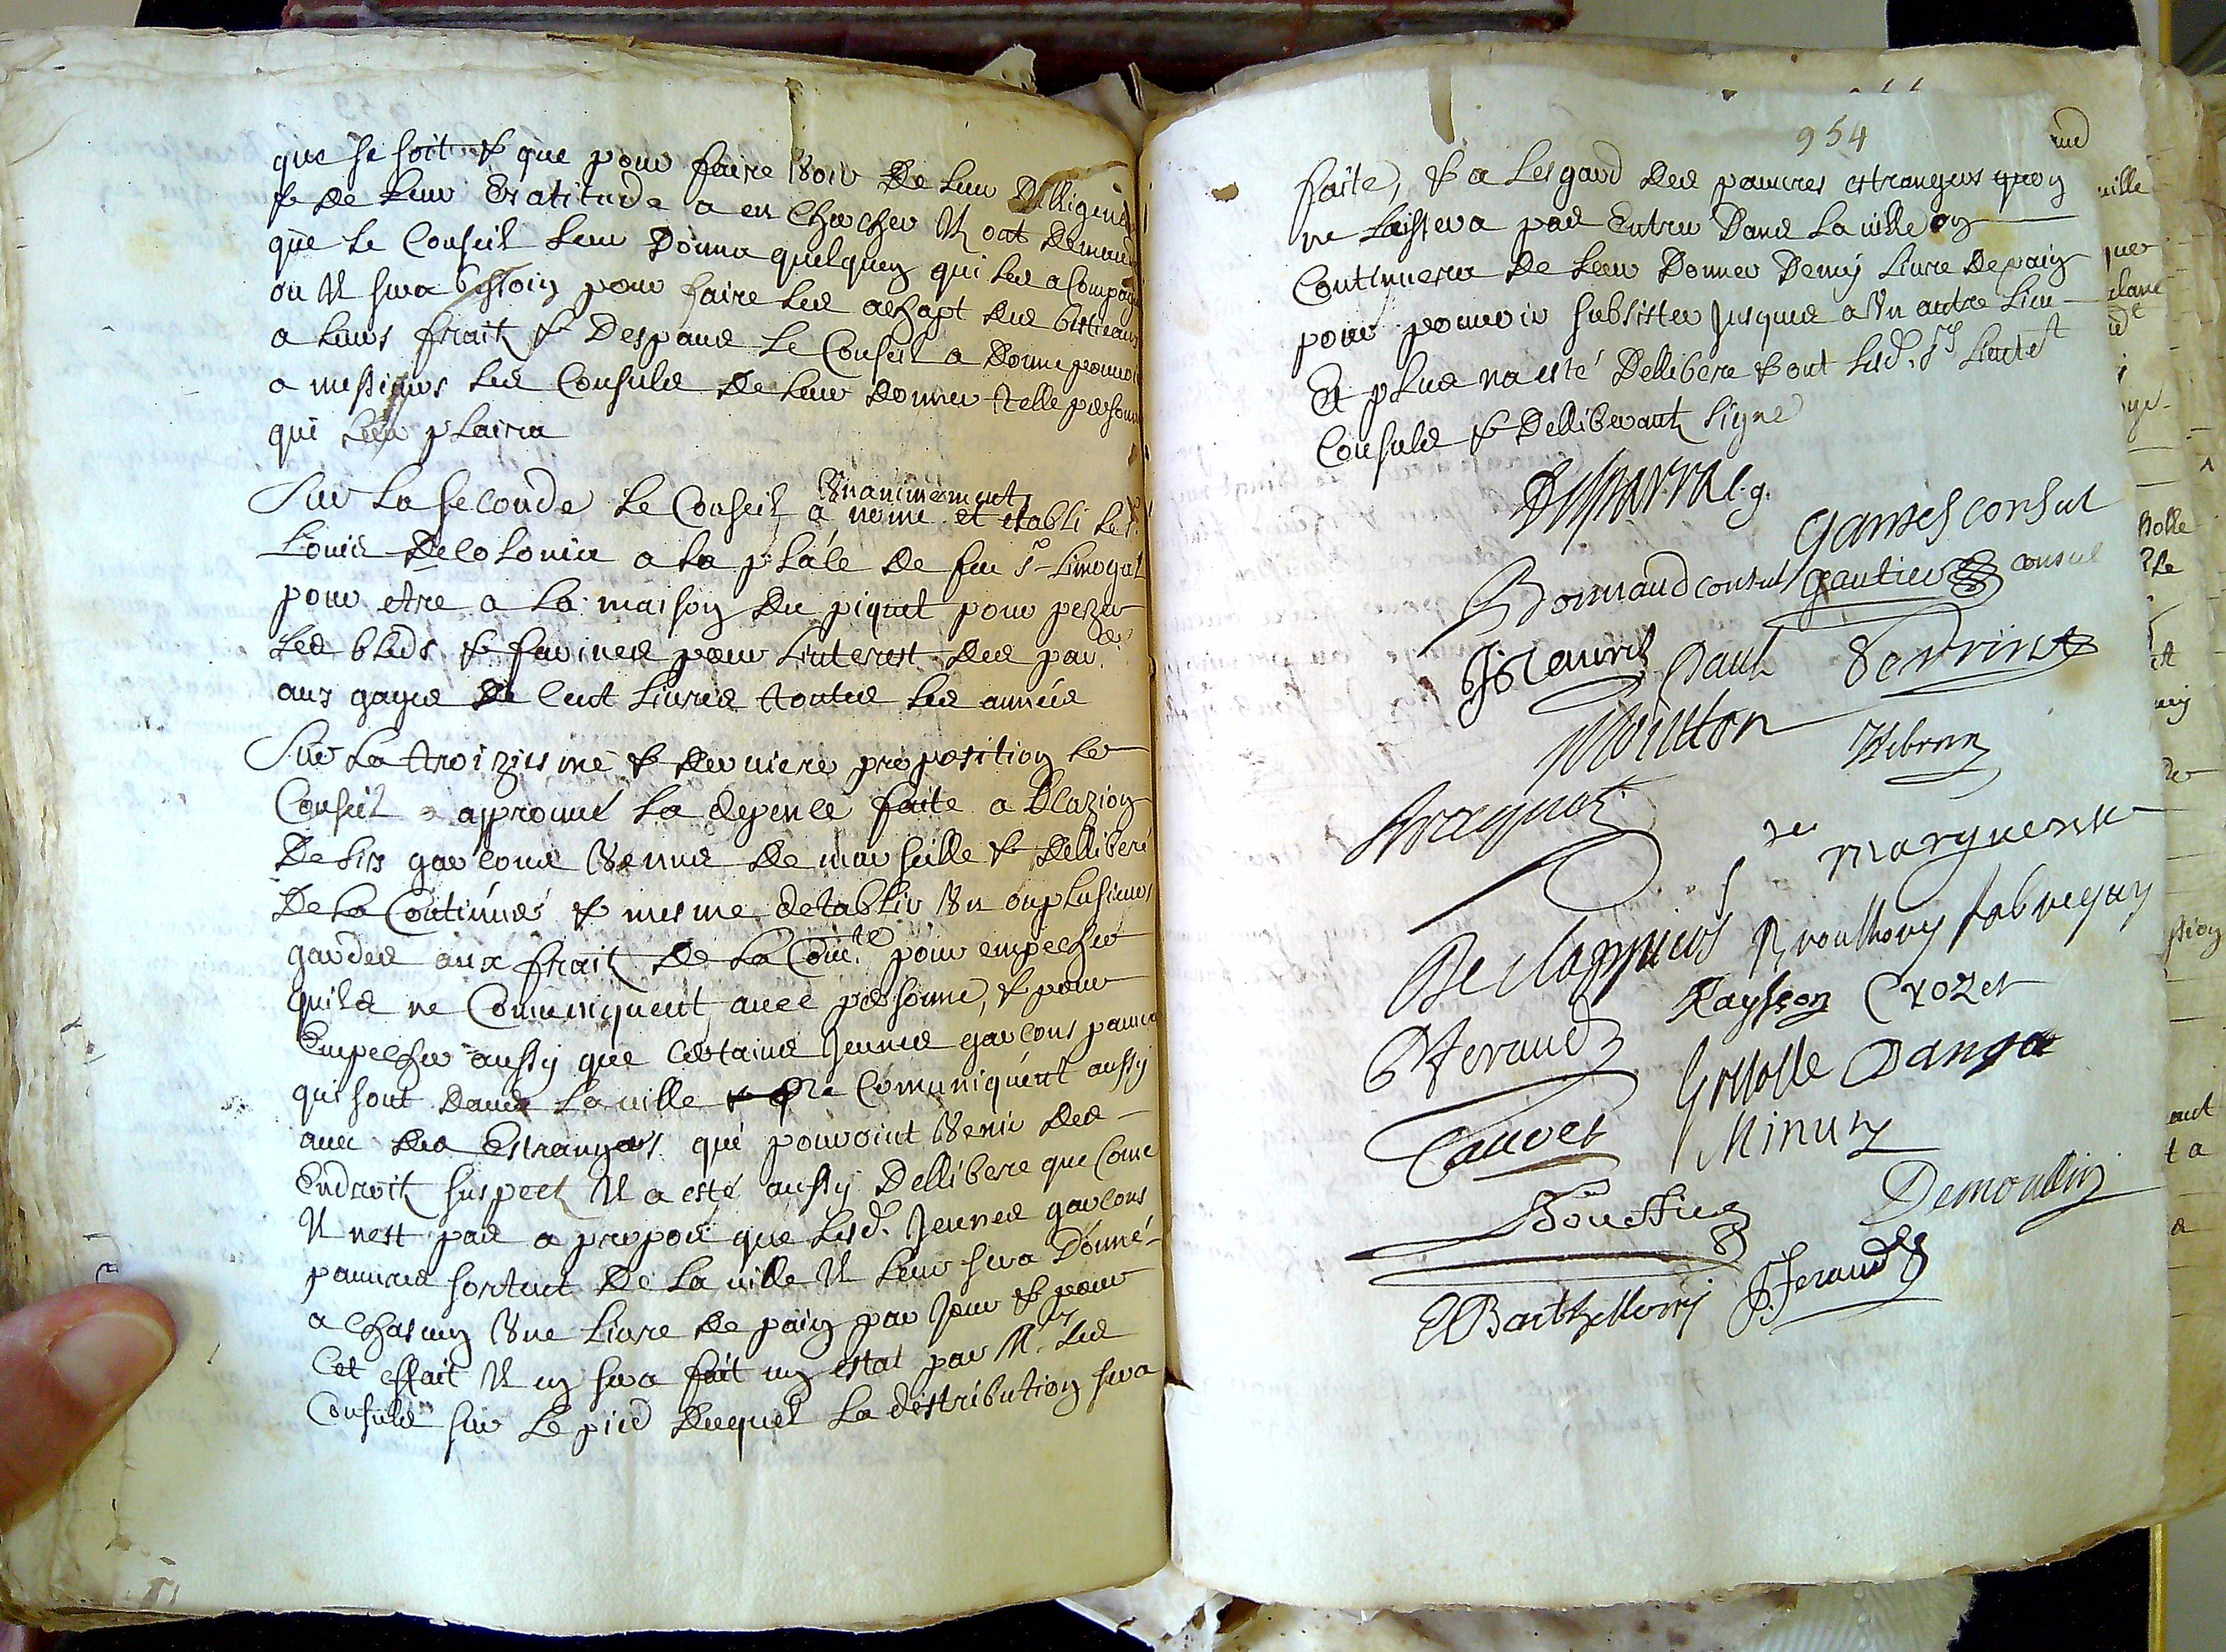 que se soit & que pour faire voir de leur dilligence
& de leur exatitude a en chercher Il ont demandé
que le Conseil leur donna quelquen qui les acompagne
ou Il sera besoin pour faire les achapt des bestieaux
a leurs frait & despans le Conseil a donné pouvoir
a messieurs les Consuls de leur donner telle personne
qui leur plaira
Sur la seconde le Conseil unanimement
a nomé et etabli le Sr
Louis de colonia a la plale de feu Sr Limogal
pour etre a la maison du piquet pour pezer
les blids & farines pour l'interest des par.
aux gages de cent livres toutes les années
Sur la troizies me & derniere proposition le
Conseil a aprouvé la depence faite a Blazion
de six garcons venus de marseille & delliberé
de la Continuer & mesme detablir un ou plusieurs
gardes aux frait de la Comte pour empecher
quils ne Comuniquent avec personne, & pour
Empecher aussy que certains Jeunes garcons pauvres
qui sont dans la ville ne Comuniquent aussy
avec des Estrangers qui pouvoint venir des
Endroit suspect Il a esté aussy delliberé que Come
Il nest pas a propos que lesd. Jeunes garcons
pauvres sortent de la ville Il leur sera donné
a chascun une livre de pain par Jour & pour
Cet effait Il en sera fait un estat par Mrs les
Consuls sur le pied duquel la distribution sera
954
faite, & a lesgard des pauvres estrangers quon
ne laissera pas entrer dans la ville on
Continuera de leur donner demy livre de pain
pour pouvoir subsister Jusques a un autre lieu
Et plus na esté delliberé & ont lesd. Srs Lieutet
Consuls & delliberants signé
Gamel consul
Bonnaud consul Gautier consul
Paul Perrin
Mouton
Marguerite
De Clappiers
Rayson Crozet
Feraud
Danga
Cauvet Minuty
Demoullin
Barthellemy J Feraud